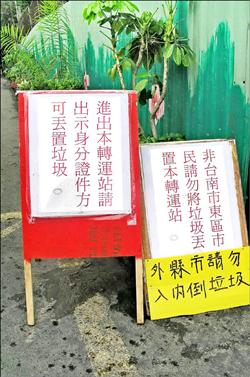 進出本轉運站請
出示身分證件方
可丟置垃圾
非台南市東區市
民請勿將垃圾丟
置本轉運站
外縣市請勿
入內倒垃圾